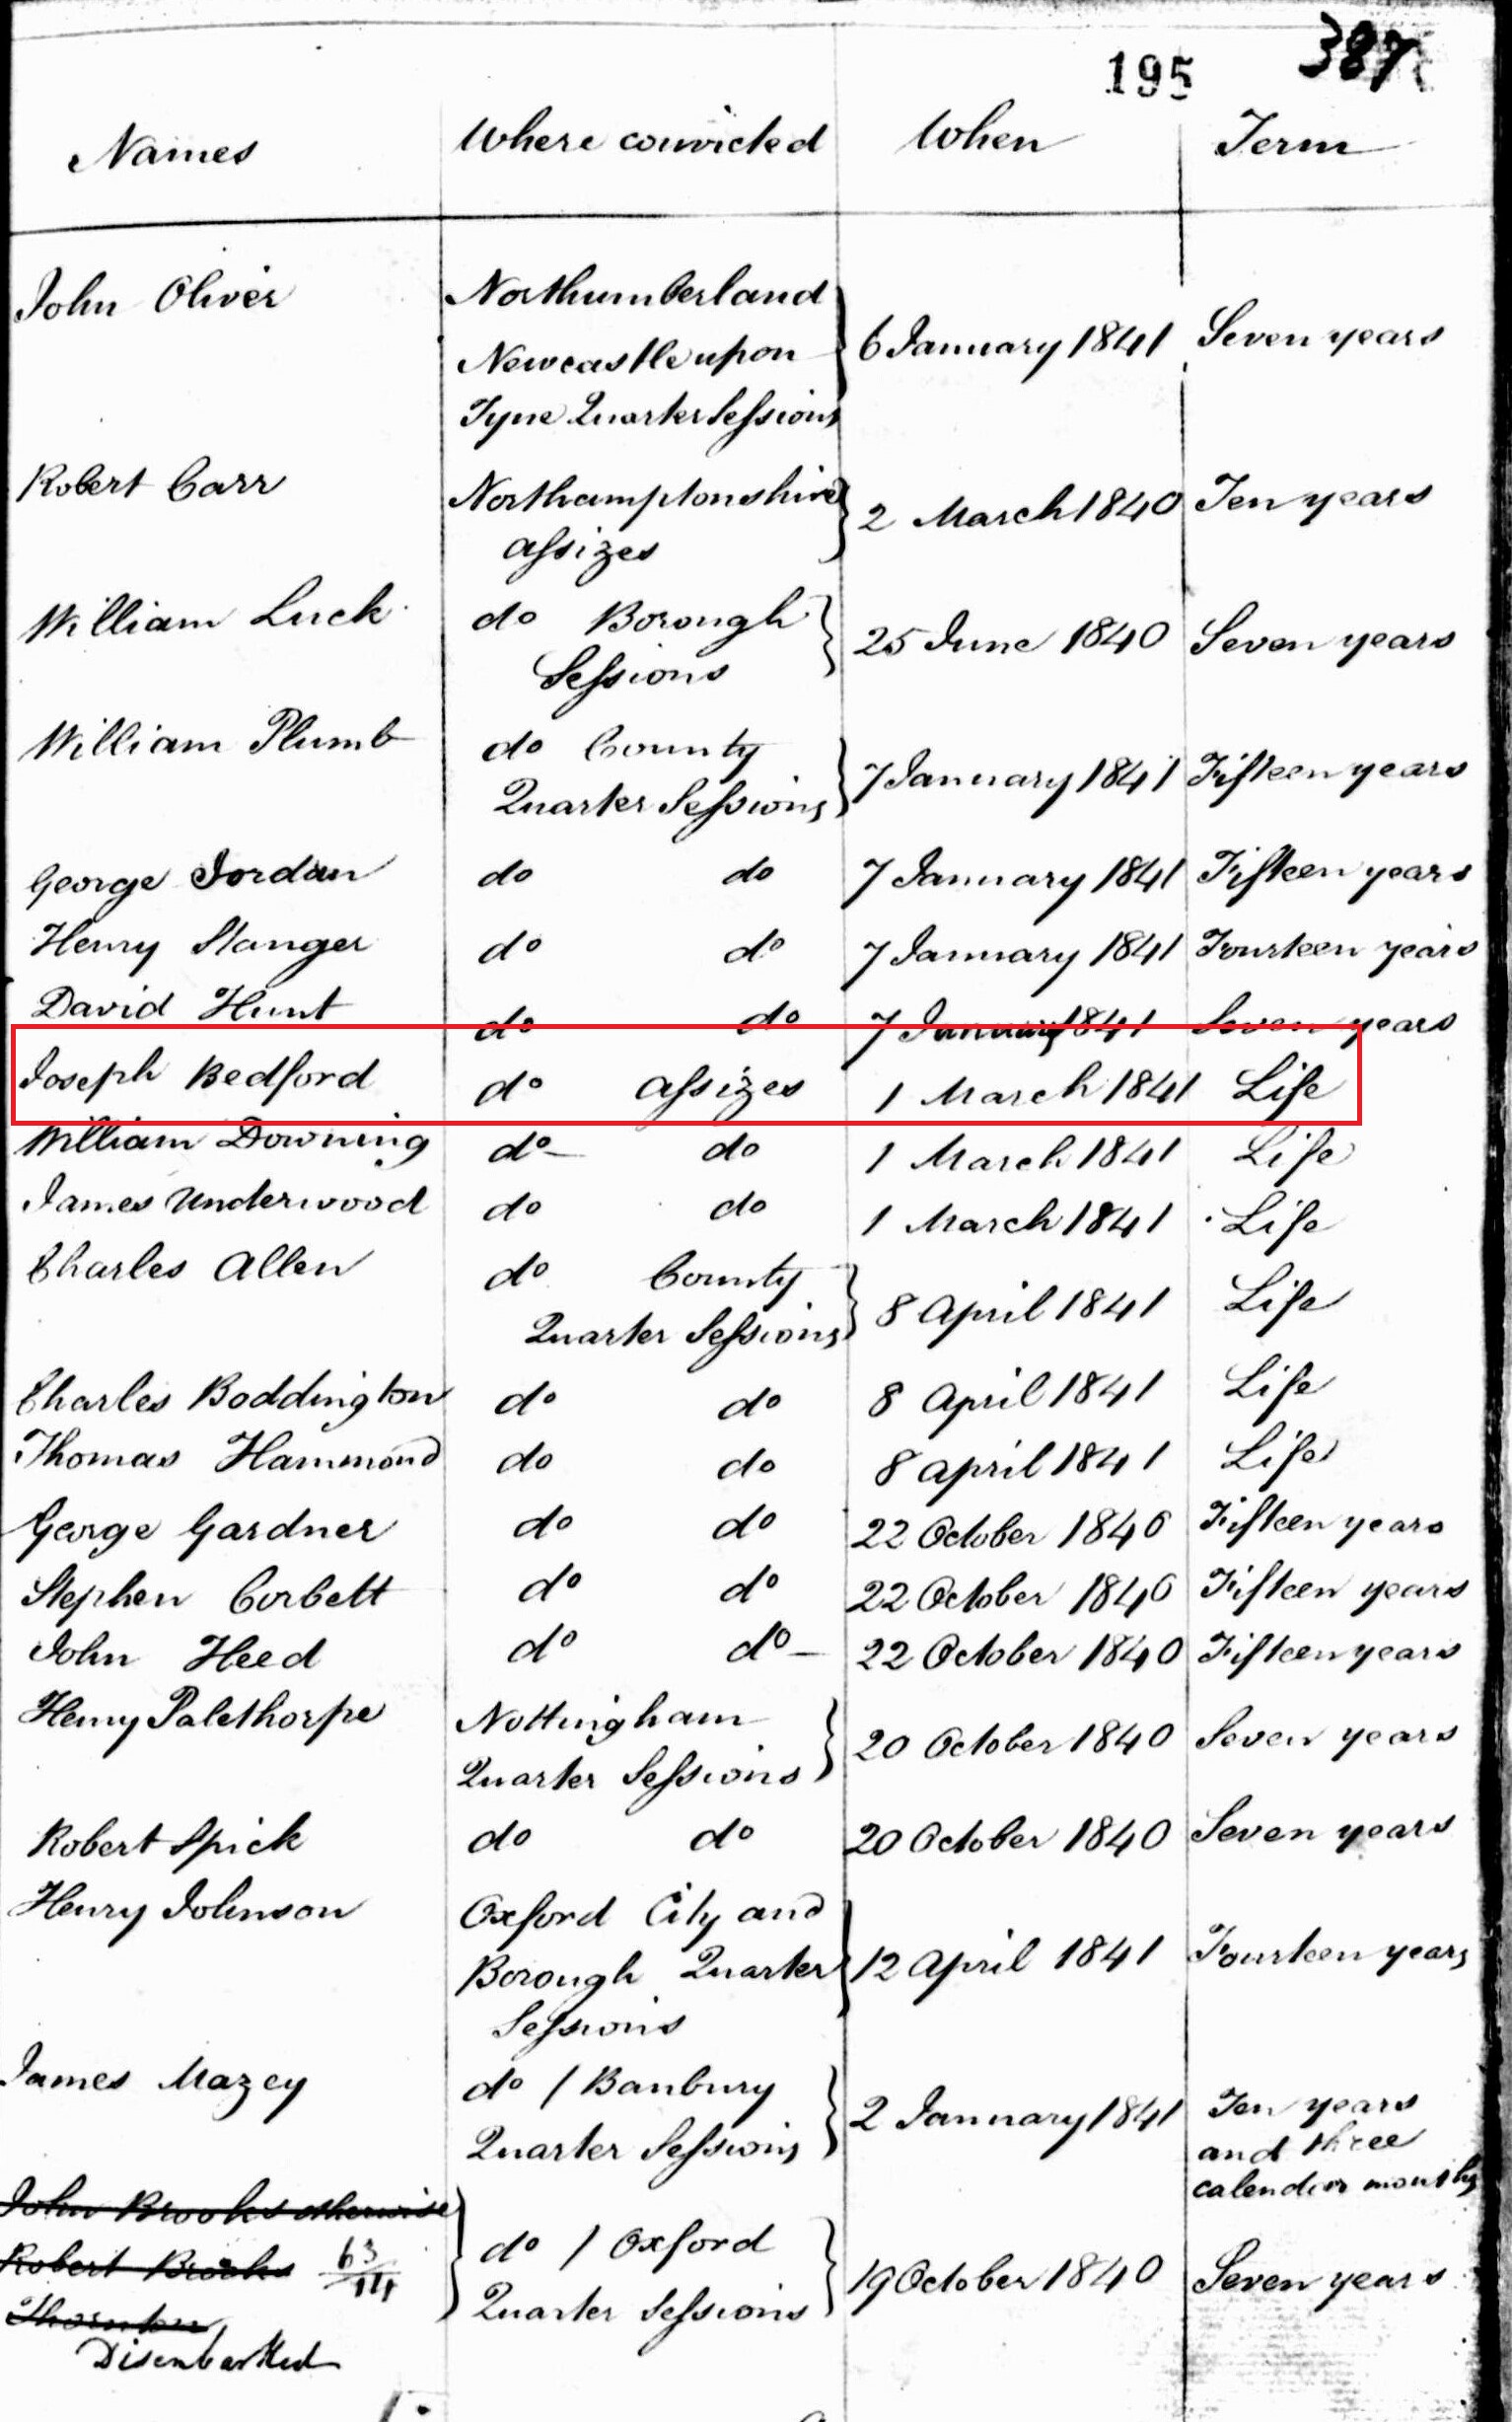 387
195
Names Where convicted When Term
John Oliver Northumberland
Newcastle upon 6 January 1841 Seven years
Tyne Quarter Sessions
Robert Carr Northamptonshire 2 March 1840 Ten years
assizes
William Luck do Borough 25 June 1840 Seven years
Sessions
William Plumb do County 7 January 1841 Fifteen years
Quarter Sessions
George Jordan do do 7 January 1841 Fifteen years
Henry Stanger do do 7 January 1841 Fourteen years
David Hunt do do 7 January 1841 Seven years
Joseph Bedford do assizes 1 March 1841 Life
William Downing do do 1 March 1841 Life
James Underwood do do 1 March 1841 Life
Charles Allen do County 8 April 1841 Life
Quarter Sessions
Charles Boddington do do 8 April 1841 Life
Thomas Hammond do do 8 April 1841 Life
George Gardner do do 22 October 1840 Fifteen years
Stephen Corbett do do 22 October 1840 Fifteen years
John Heed do do 22 October 1840 Fifteen years
Henry Palethorpe Nottingham 20 October 1840 Seven years
Quarter Sessions
Robert Spick do do 20 October 1840 Seven years
Henry Johnson Oxford City and
Borough Quarter 12 April 1841 Fourteen years
Sessions
James Mazey do / Banbury 2 January 1841 Ten years
Quarter Sessions and three
calendar months
John Brooks otherwise
Robert Brooks 63/14 do / Oxford 19 October 1840 Seven years
Thornton Quarter Sessions
Disembarked